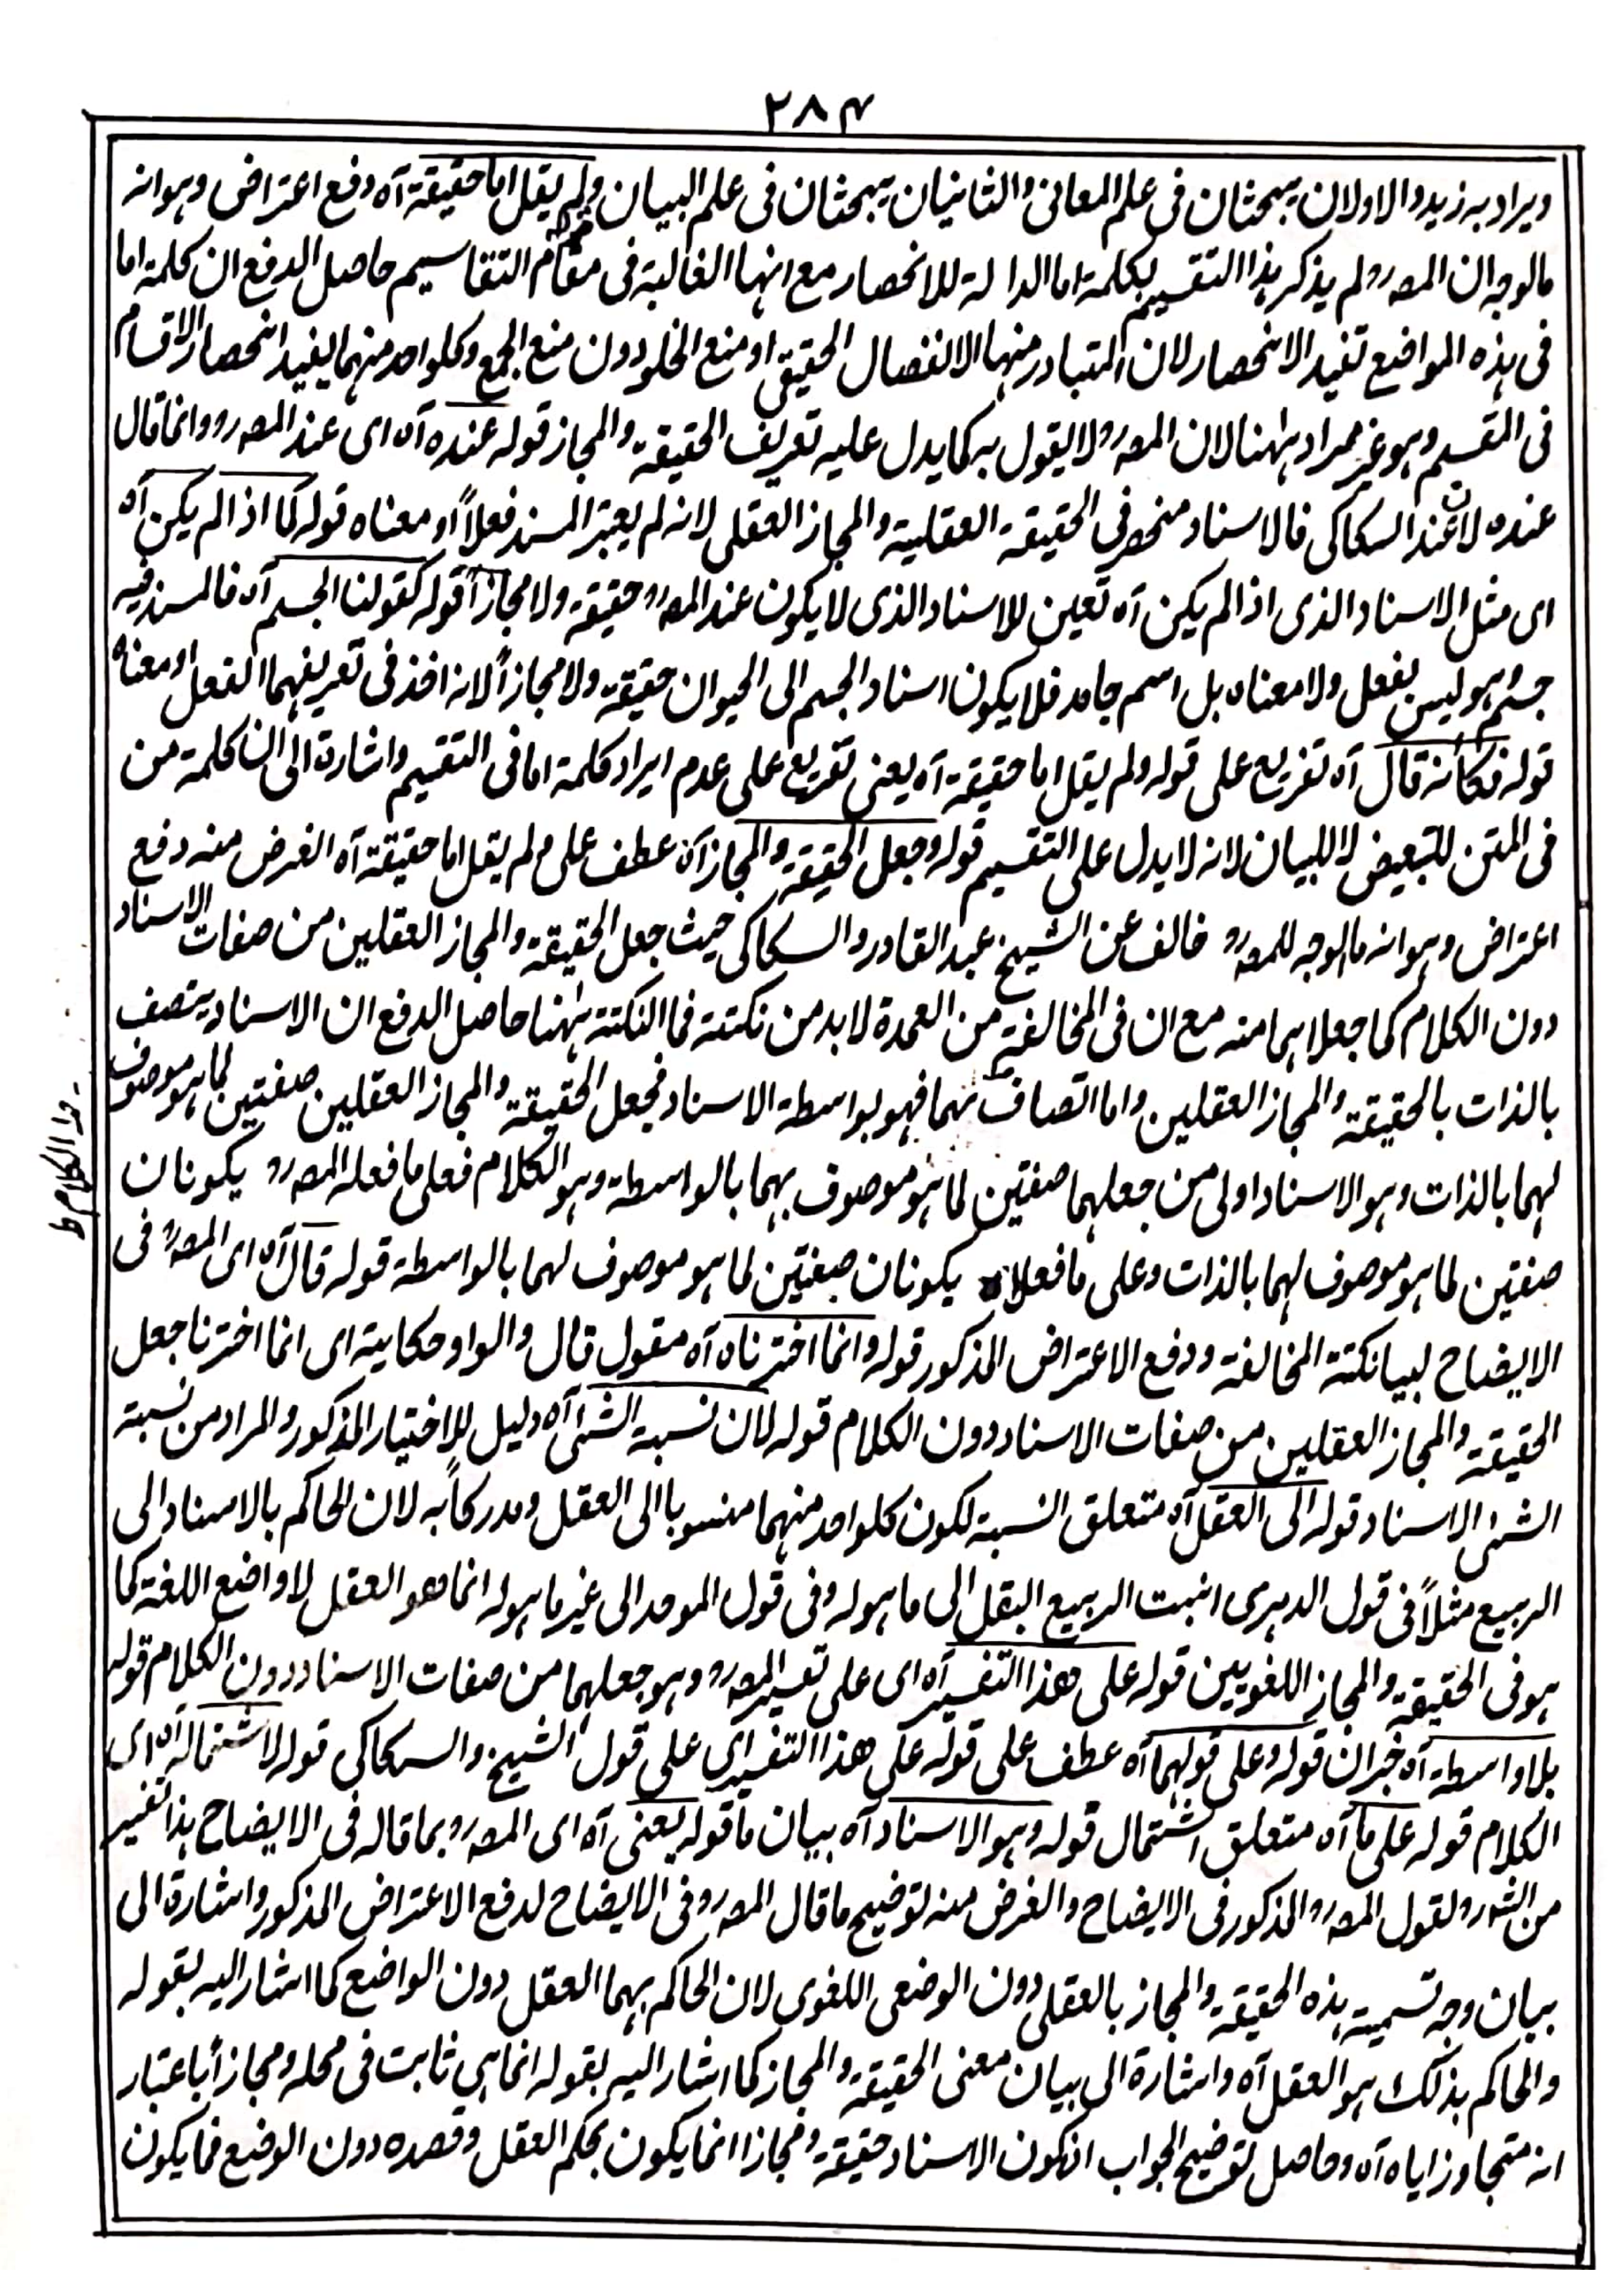 ۲۸۴
ويراد به زيد والاولان يبحثان فى علم المعانى والثانيان يبحثان فى علم البيان ولم يقل اما حقيقة آه دفع اعتراض وهو انه
ما لوجه ان المصرو لم يذكر هذا التقسيم بكلمة اما الدالة للانحصار مع انها الغالبة فى مقام التقاسيم حاصل الدفع ان كلمة اما
فى هذه المواضع تفيد الانحصار لان المتبادر منها الانفصال الحقيقى او منع الخلو دون منع الجمع وكلواحد منهما يفيد انحصار الاقسام
فى المقسم وهو غير مراد ههنا لان المصرو لا يقول به كما يدل عليه تعريف الحقيقة والمجاز قوله عنده آه اى عند المصرو وانما قال
عنده لان عند السكاكى فالاسناد منحصر فى الحقيقة العقلية والمجاز العقلى لانه لم يعتبر المسند فعلاً او معناه قوله كما اذا لم يكن آه
اى مثل الاسناد الذى اذا لم يكن آه تعين للاسناد الذى لا يكون عند المصرو حقيقة ولا مجازاً قوله كقولنا الجسم آه فالمسند فيه
جسم وهو ليس بفعل ولا معناه بل اسم جامد فلا يكون اسناد الجسم الى الحيوان حقيقة ولا مجازاً لانه اخذ فى تعريفهما الفعل او معناه
قوله فكأنه قال آه تفريع على قوله ولم يقل اما حقيقة آه يعنى تفريع على عدم ايراد كلمة اما فى التقسيم واشارة الى ان كلمة من
فى المتن للتبعيض لا للبيان لانه لا يدل على التقسيم قوله وجعل الحقيقة والمجاز آه عطف على ولم يقل اما حقيقة آه الغرض منه دفع
اعتراض وهو انه ما لوجه للمصرو خالف عن الشيخ عبد القادر والسكاكى حيث جعل الحقيقة والمجاز العقلين من صفات الاسناد
دون الكلام كما جعلاهما منه مع ان فى المخالفة من العمدة لا بد من نكتة فما النكتة ههنا حاصل الدفع ان الاسناد يتصف
بالذات بالحقيقة والمجاز العقلين واما اتصاف بهما فهو بواسطة الاسناد فجعل الحقيقة والمجاز العقلين صفتين لما هو موصوف
الكلام ط
لهما بالذات وهو الاسناد اولى من جعلهما صفتين لما هو موصوف بهما بالواسطة وهو الكلام فعلى ما فعله المصرو يكونان
صفتين لما هو موصوف لهما بالذات وعلى ما فعلاه يكونان صفتين لما هو موصوف لهما بالواسطة قوله قال آه اى المصرو فى
الايضاح لبيانكتة المخالفة ودفع الاعتراض المذكور قوله وانما اخترناه آه مقول قال والواو حكاية اى انما اخترنا جعل
الحقيقة والمجاز العقلين من صفات الاسناد دون الكلام قوله لان نسبة الشئ آه دليل للاختيار المذكور والمراد من نسبة
الشئى الاسناد قوله الى العقل آه متعلق النسبة لكون كلواحد منهما منسوبا الى العقل ومدركاً به لان الحاكم بالاسناد الى
الربيع مثلاً فى قول الدهرى انبت الربيع البقل الى ما هو له وفى قول الموحد الى غير ما هو له انما هو العقل لا واضع اللغة كما
هو فى الحقيقة والمجاز اللغويين قوله على هذا التفسير آه اى على تفسير المصرو وهو جعلهما من صفات الاسناد دون الكلام قوله
بلا واسطة آه خبر ان قوله وعلى قولهما آه عطف على قوله على هذا التفسير اى على قول الشيخ والسكاكى قوله لاشتماله آه اى
الكلام قوله على ما آه متعلق اشتمال قوله وهو الاسناد آه بيان ما قوله يعنى آه اى المصرو بما قاله فى الايضاح هذا تفسير
من الشرو لقول المصرو المذكور فى الايضاح والغرض منه توضيح ما قال المصرو فى الايضاح لدفع الاعتراض المذكور واشارة الى
بيان وجه تسمية هذه الحقيقة والمجاز بالعقلى دون الوضعى اللغوى لان الحاكم بهما العقل دون الواضع كما اشار اليه بقوله
والحاكم بذلك هو العقل آه واشارة الى بيان معنى الحقيقة والمجاز كما اشار اليه بقوله انما هى ثابت فى محله ومجازاً باعتبار
انه متجاوز اياه آه وحاصل توضيح الجواب انكون الاسناد حقيقة ومجازا انما يكون بحكم العقل وقصده دون الوضع فما يكون